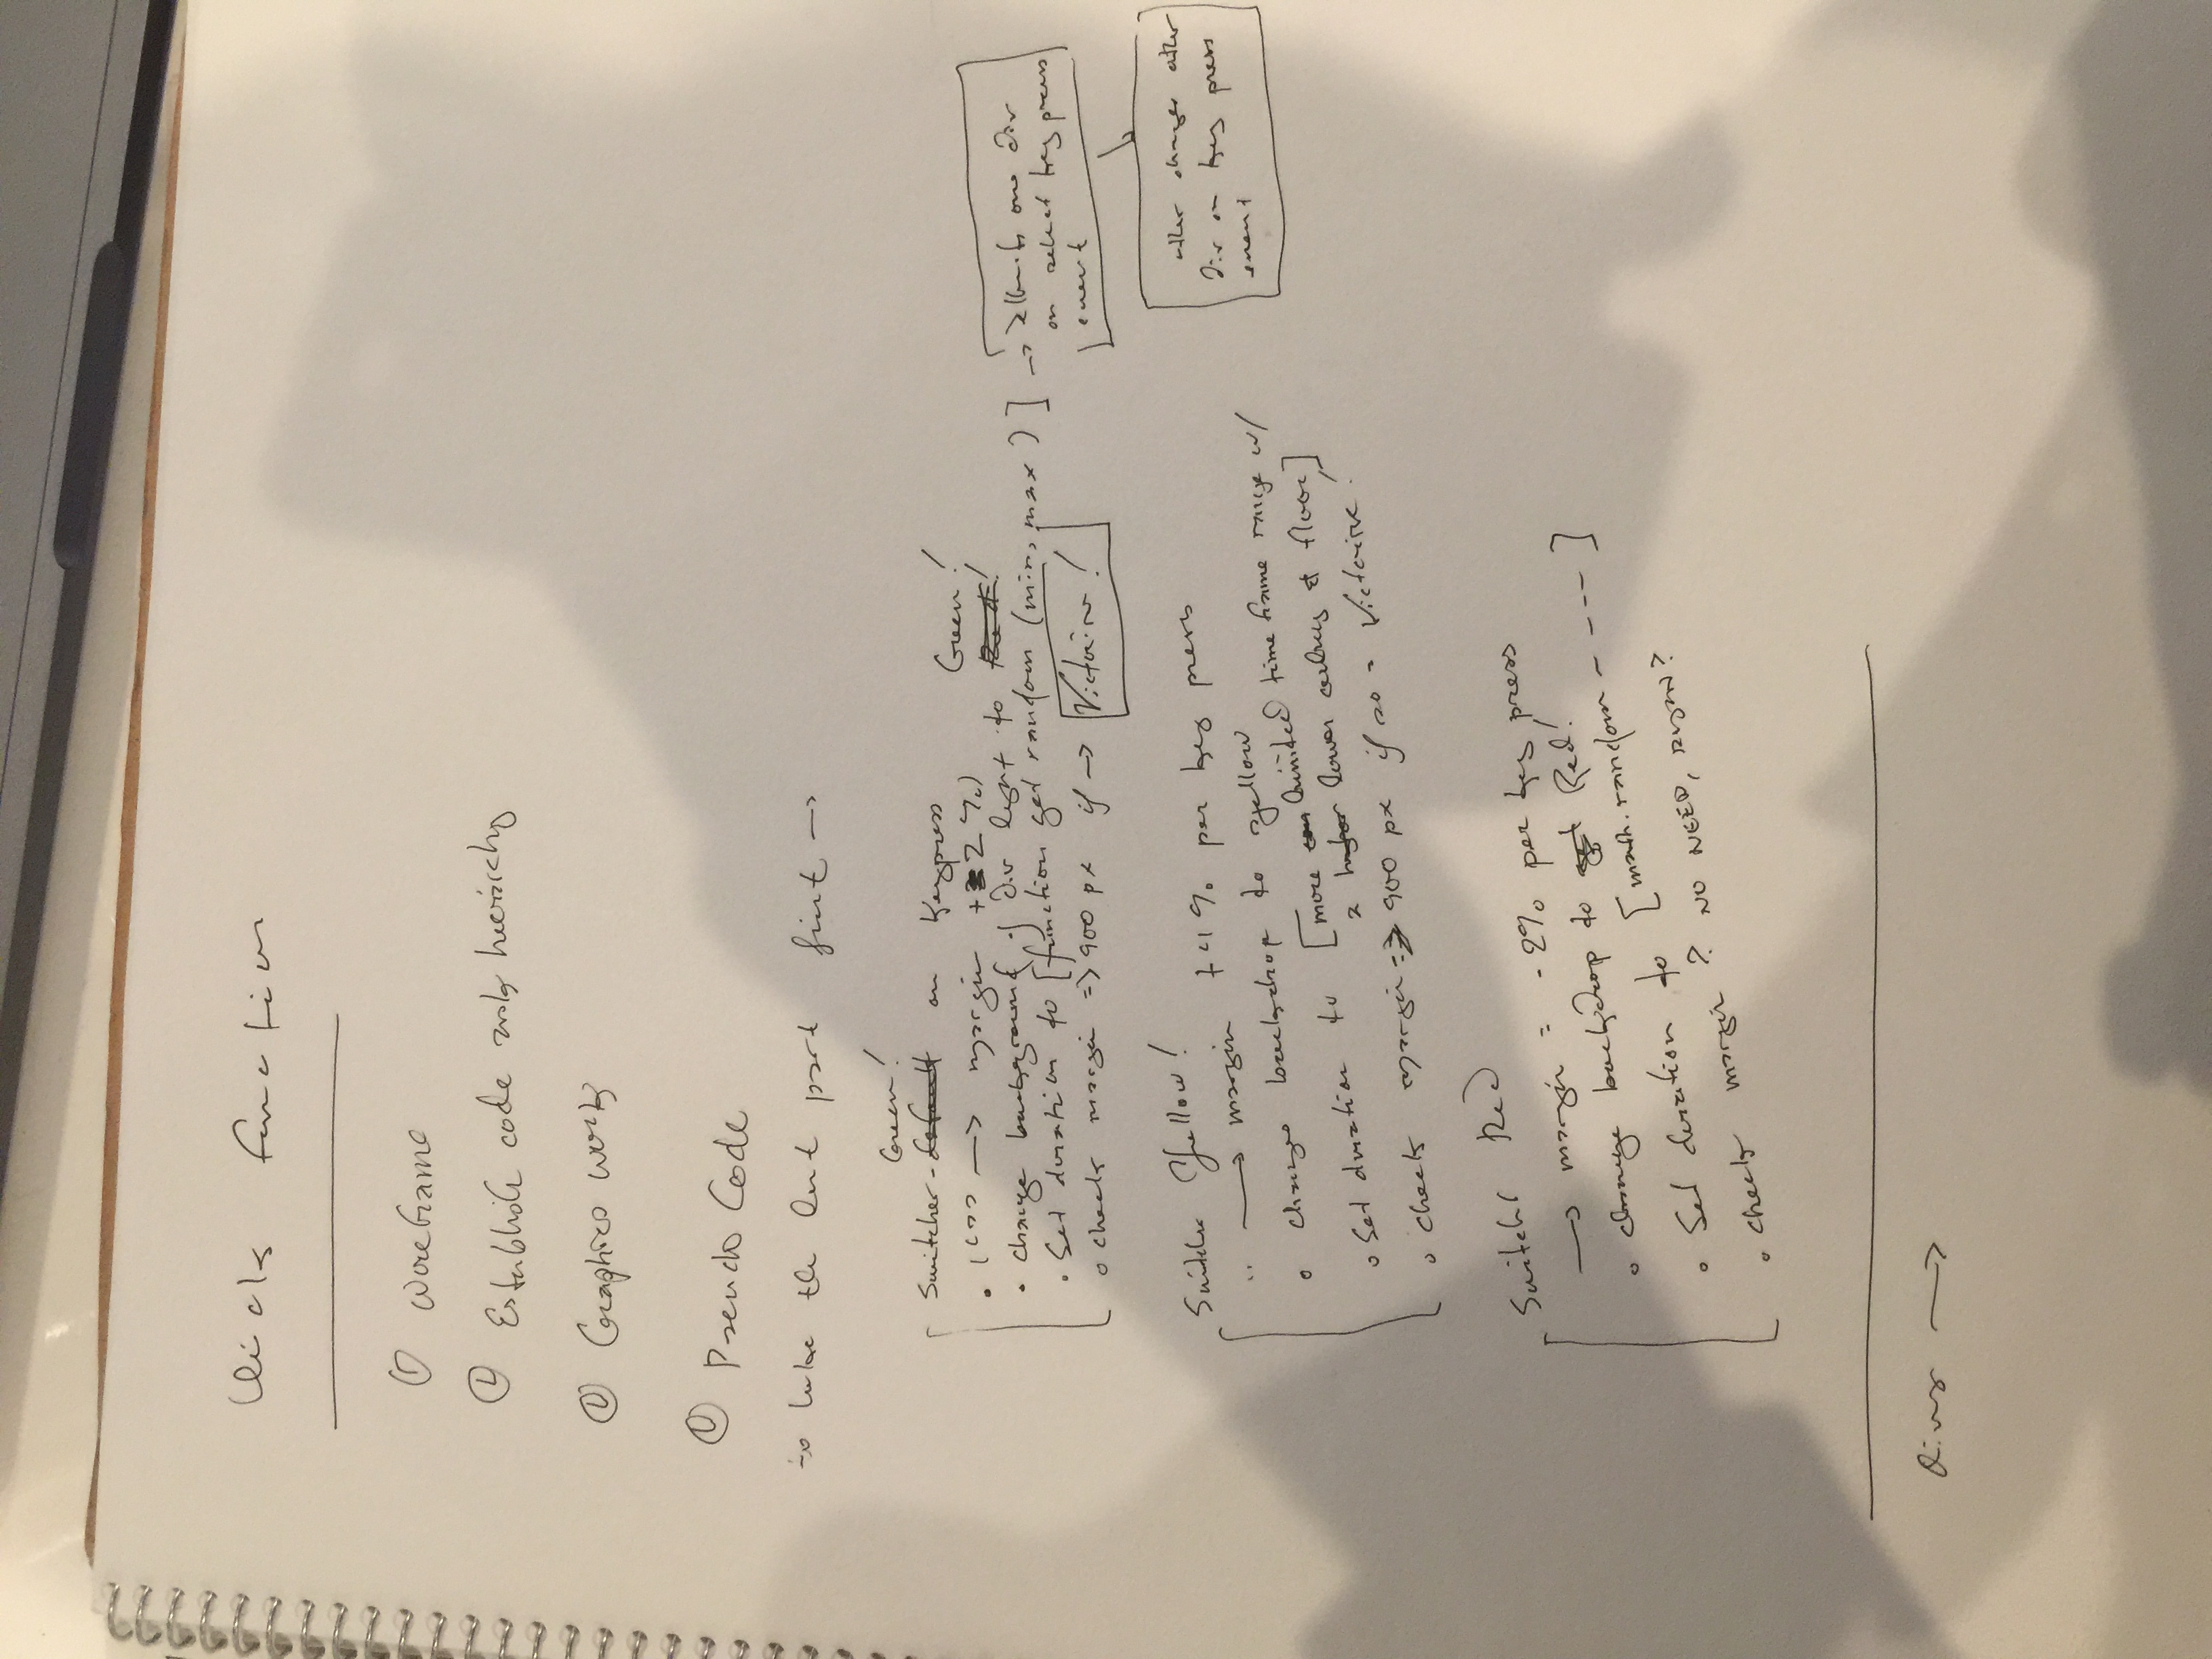 function
① Wireframe
① Establish code hierarchy
① Graphics work
① Pseudo Code
→ the part first →
Green!
Switcher - default on Keypress
• → margin + 2%)
Green!
• change background of div light to Red!
• Set duration to [function get random (min, max)] →
• check margin => 900 px if → Victoire!
one div
on select key press
event
other changes other
div on key press
event
Switcher Yellow!
" → margin + 1% per key press
• changes backdrop to yellow
• Set duration to [more limited time frame range w/
a higher lower ceiling & floor]
• check margin => 900 px if so = Victoire!
Switcher Red
→ margin = -2% per key press
• change backdrop to Red!
• Set duration to [math.random - - - -]
• check margin? NO NEED, RIGHT?
Divs →